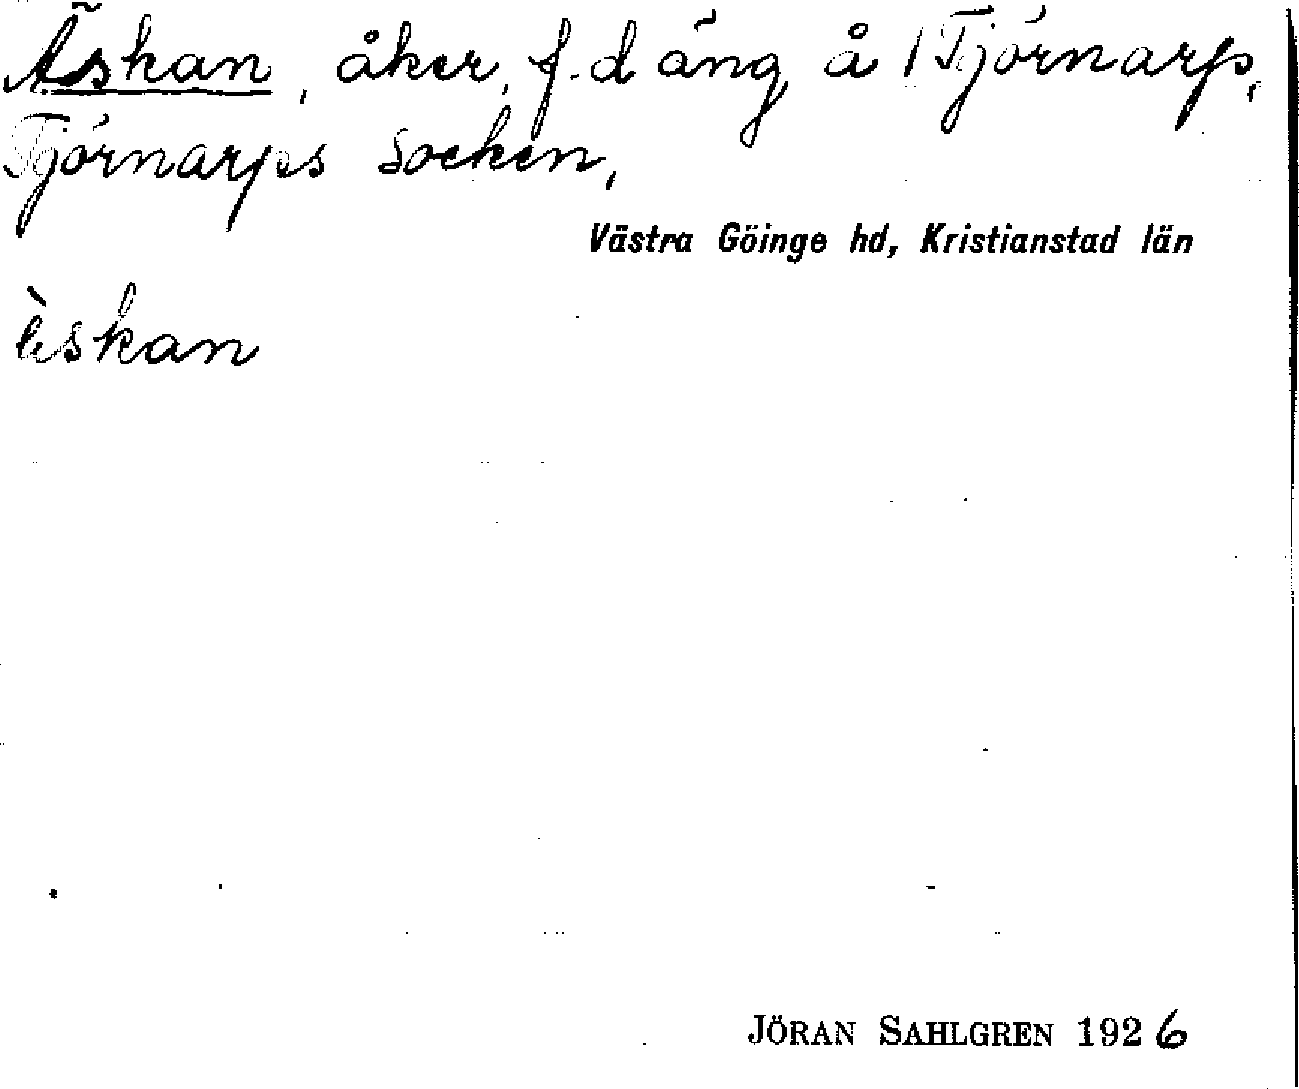 Äskan, åker, f.d äng å 1 Tjörnarp,
Tjörnarps socken,
Västra Göinge hd, Kristianstad län
èskan
JÖRAN SAHLGREN 1926